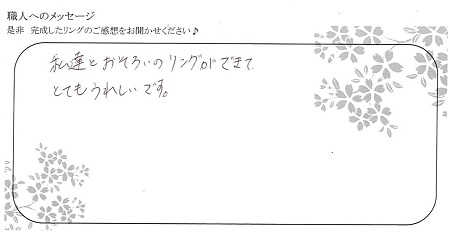 職人へのメッセージ
是非 完成したリングのご感想をお聞かせください♪
私達とおそろいのリングができて
とてもうれしいです。